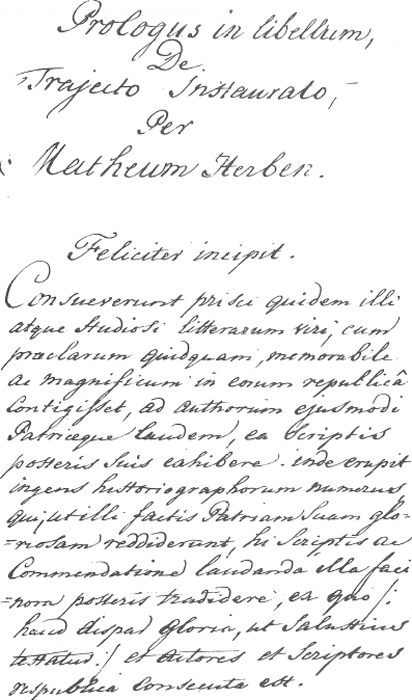 Prologus in libellum,
De
Trajecto Instaurato,
Per
Matheum Herben.
Feliciter incipit.
Consueverunt prisci quidem illi
atque studiosi litterarum viri, cum
præclarum quidquam, memorabile
ac magnificum in eorum republicâ
Contigisset, ad authorum ejusmodi
Patriæque laudem, ea Scriptis
posteris suis exhibere. inde erupit
ingens historiographorum numerus,
qui, ut illi factis Patriam Suam glo-
=riosam reddiderunt, hi Scriptis ac
Commendatione laudanda illa faci
=nora posteris tradidere, ex quo /:
haud dispar gloria, ut Salustius
testatus :/ et autores et Scriptores
respublica consecuta est.